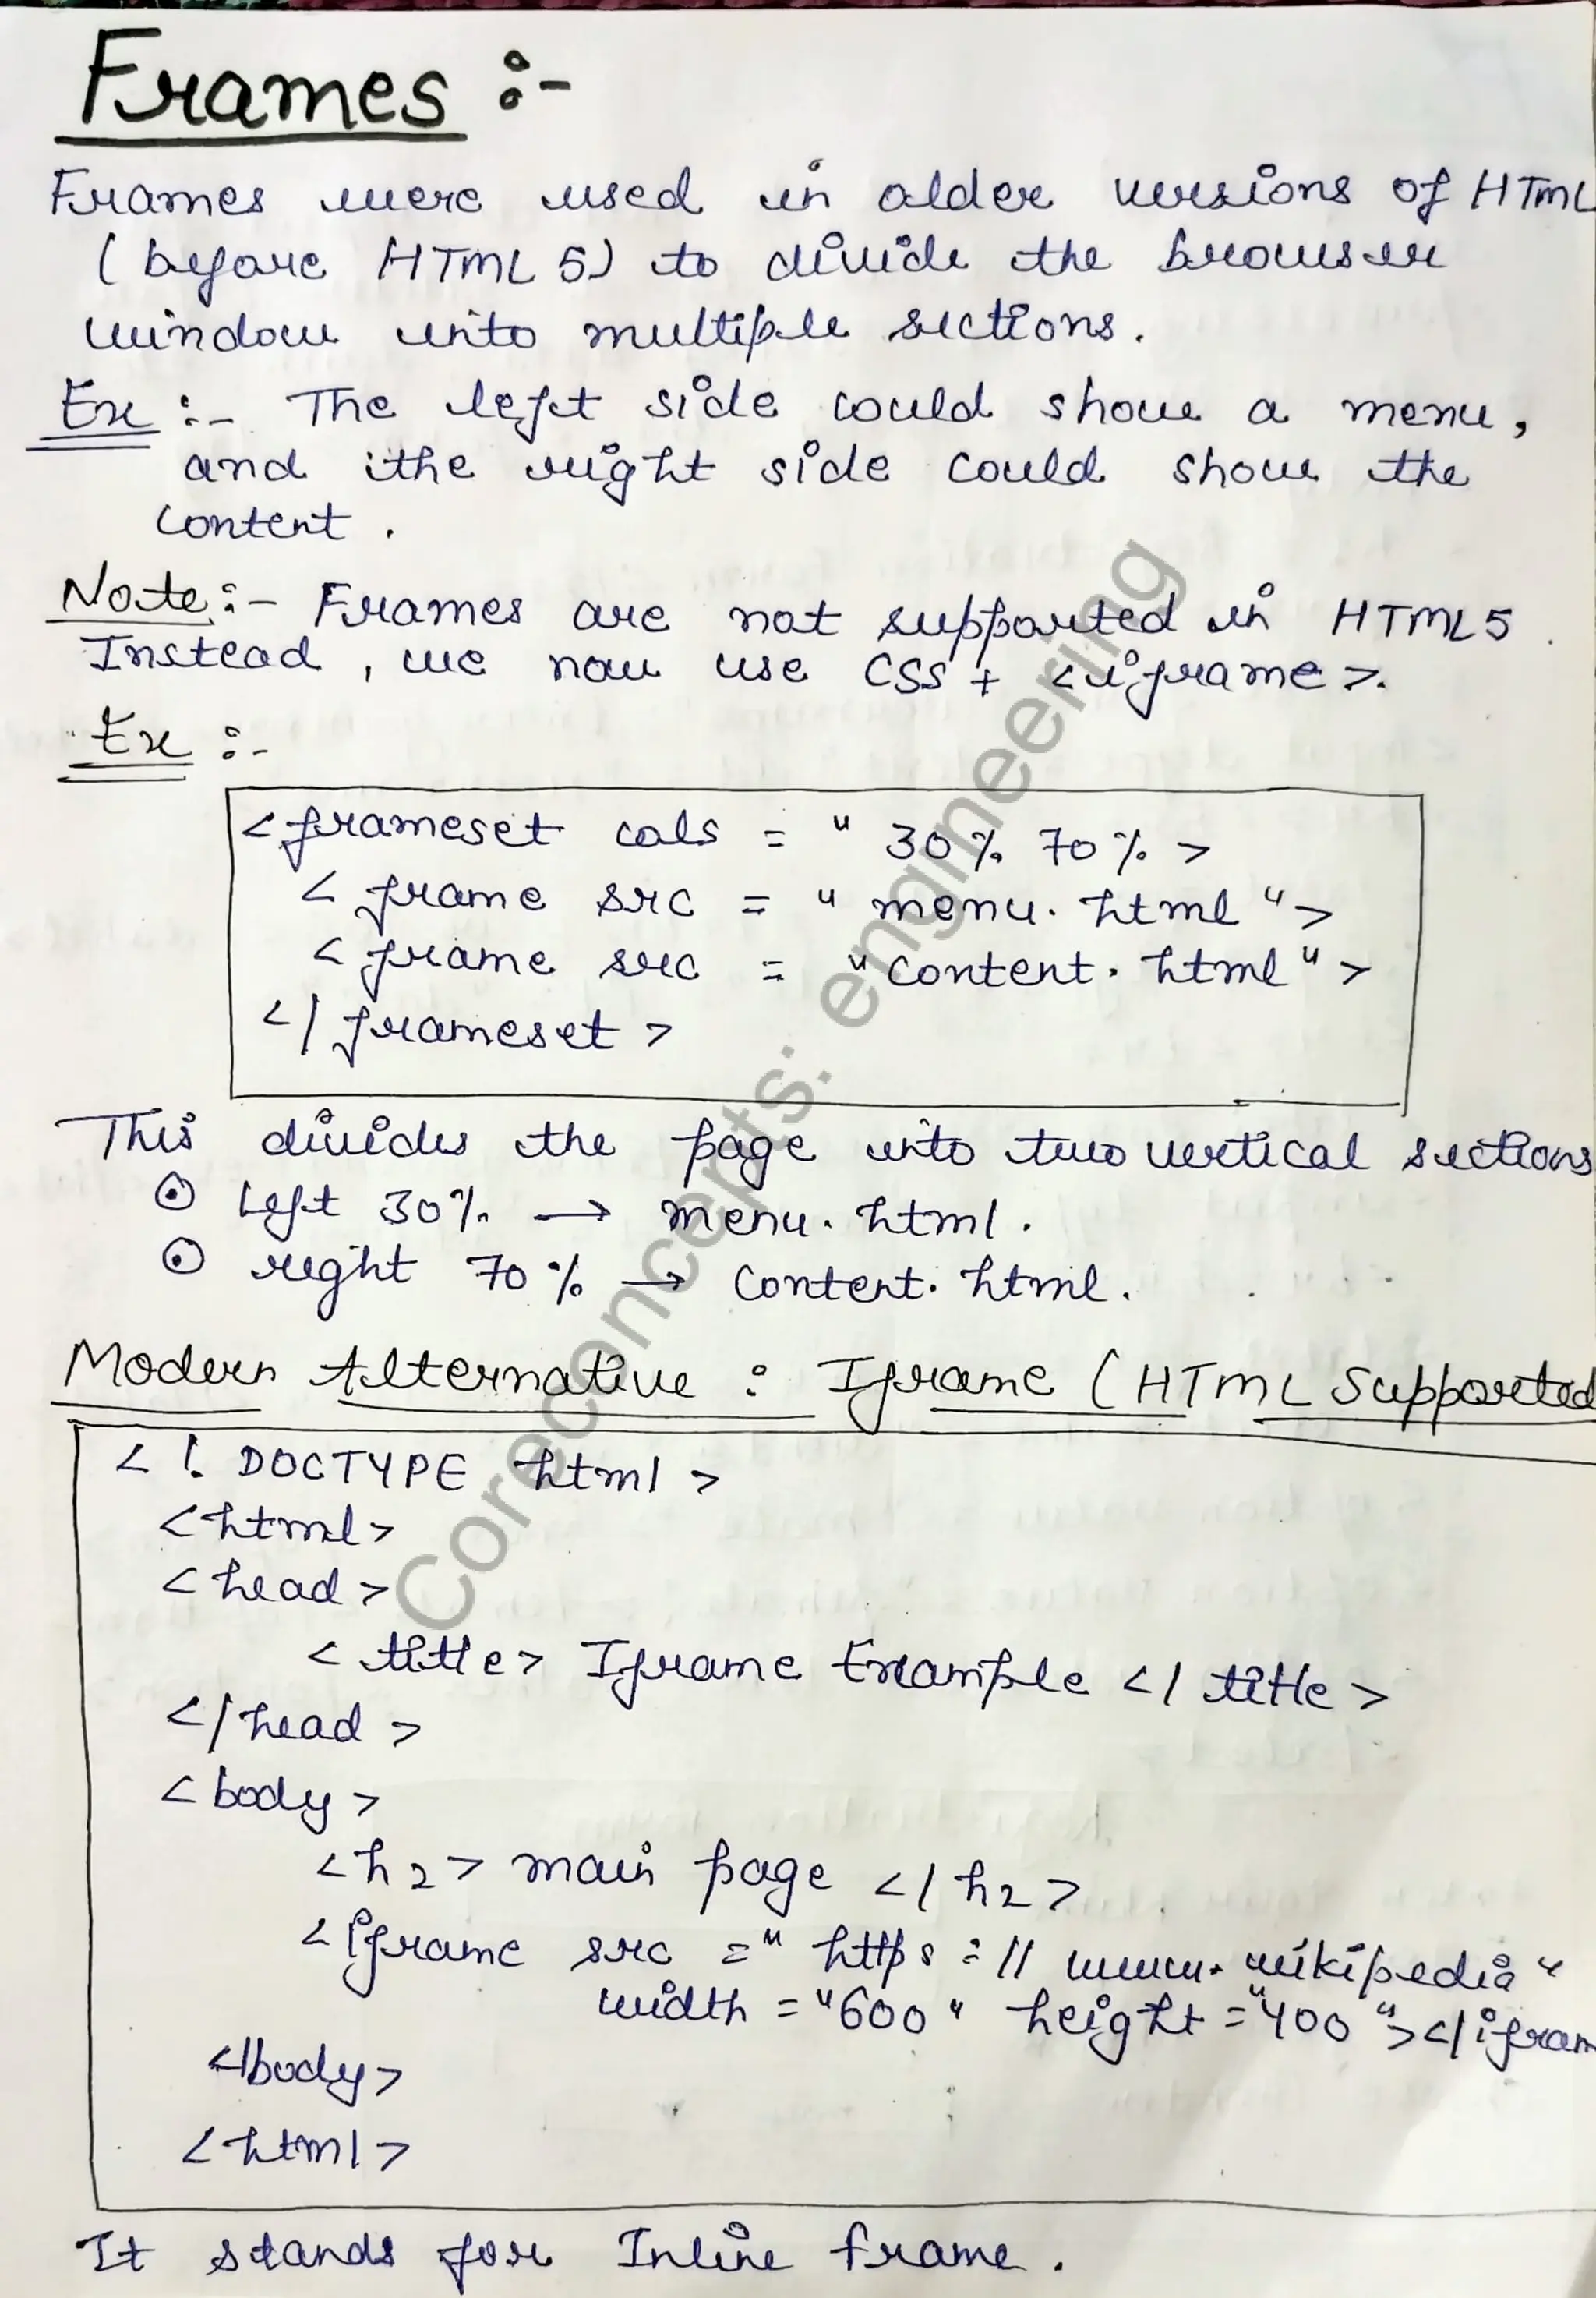 Frames :-
Frames were used in older versions of HTML
(before HTML 5) to divide the browser
window into multiple sections.
Ex :- The left side could show a menu,
and the right side could show the
content .
Note :- Frames are not supported in HTML5 .
Instead , we now use CSS + <iframe>.
Ex :-
<frameset cols = " 30% 70% >
< frame src = " menu. html ">
< frame src = " content. html ">
</ frameset >
This divides the page into two vertical sections
⊙ Left 30% → menu. html .
⊙ right 70% → content. html .
Modern Alternative : Iframe (HTML Supported
< ! DOCTYPE html >
<html>
<head>
< title> Iframe Example </ title >
</head >
<body >
<h2> main page </ h2>
<iframe src =" https :// www. wikipedia "
width = "600 " height = "400 "></ifram
</body>
<html>
It stands for Inline frame .
Coreconcepts: engineering